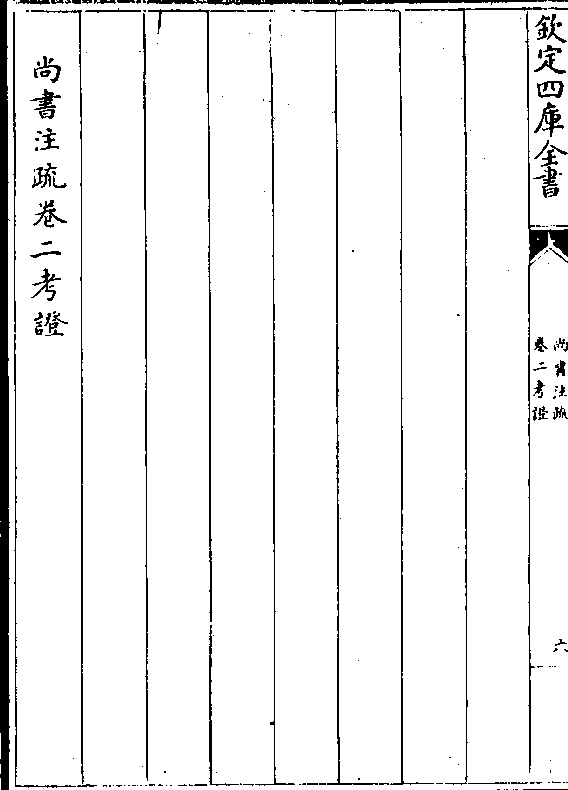 欽定四庫全書
尚書注疏
卷二考證
六
尚書注疏卷二考證